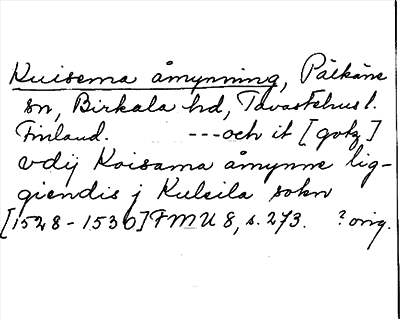 Kuisema åmynning, Pälkäne
sn, Birkala hd, Tavastehus l.
Finland. ---och it [gotz]
vdij Koisama åmynne lig-
giendis j Kulsila sokn
[1528-1530] FMU 8, s. 273. ? orig.